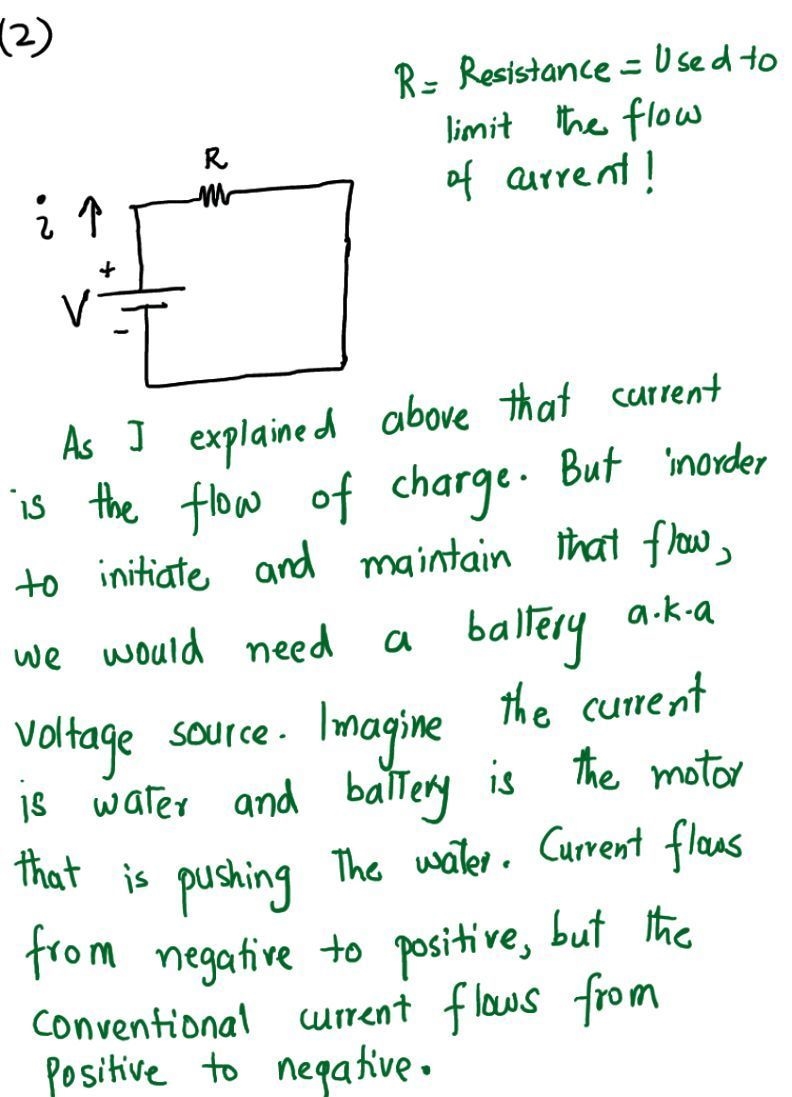 (2)
R = Resistance = Used to
limit the flow
of current!
R
i ↑
+
V
-
As I explained above that current
is the flow of charge. But inorder
to initiate and maintain that flow,
we would need a battery a.k.a
voltage source. Imagine the current
is water and battery is the motor
that is pushing the water. Current flows
from negative to positive, but the
conventional current flows from
Positive to negative.